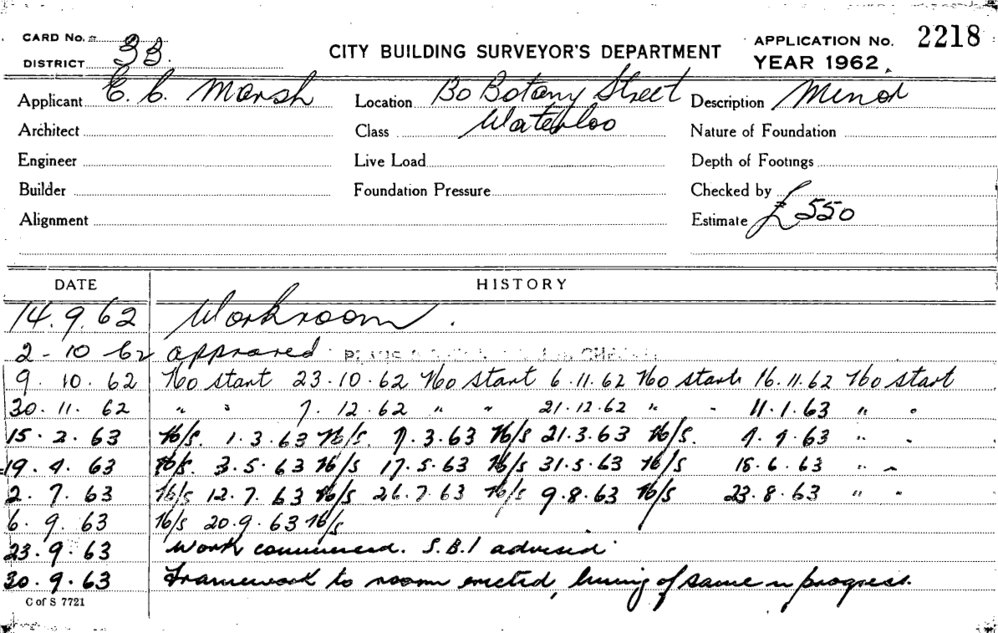 CARD No. 33 CITY BUILDING SURVEYOR'S DEPARTMENT APPLICATION No. 2218
DISTRICT YEAR 1962
Applicant E. C. Marsh Location Botany Street Description Minor
Architect Class Waterloo Nature of Foundation
Engineer Live Load Depth of Footings
Builder Foundation Pressure Checked by
Alignment Estimate £550
DATE HISTORY
14.9.62 Workroom.
2-10 62 approved
9.10.62 No start 23.10.62 No start 6.11.62 No start 16.11.62 No start
30.11.62 " " 7.12.62 " " 21.12.62 " " 11.1.63 " "
15.2.63 No/s. 1.3.63 No/s. 7.3.63 No/s 21.3.63 No/s. 4.4.63 " "
19.4.63 No/s. 3.5.63 No/s 17.5.63 No/s 31.5.63 No/s 18.6.63 " "
2.7.63 No/s 12.7.63 No/s 26.7.63 No/s 9.8.63 No/s 23.8.63 " "
6.9.63 No/s 20.9.63 No/s
23.9.63 Work commenced. S.B.I advised
30.9.63 Framework to room erected, lining of same in progress.
C of S 7721